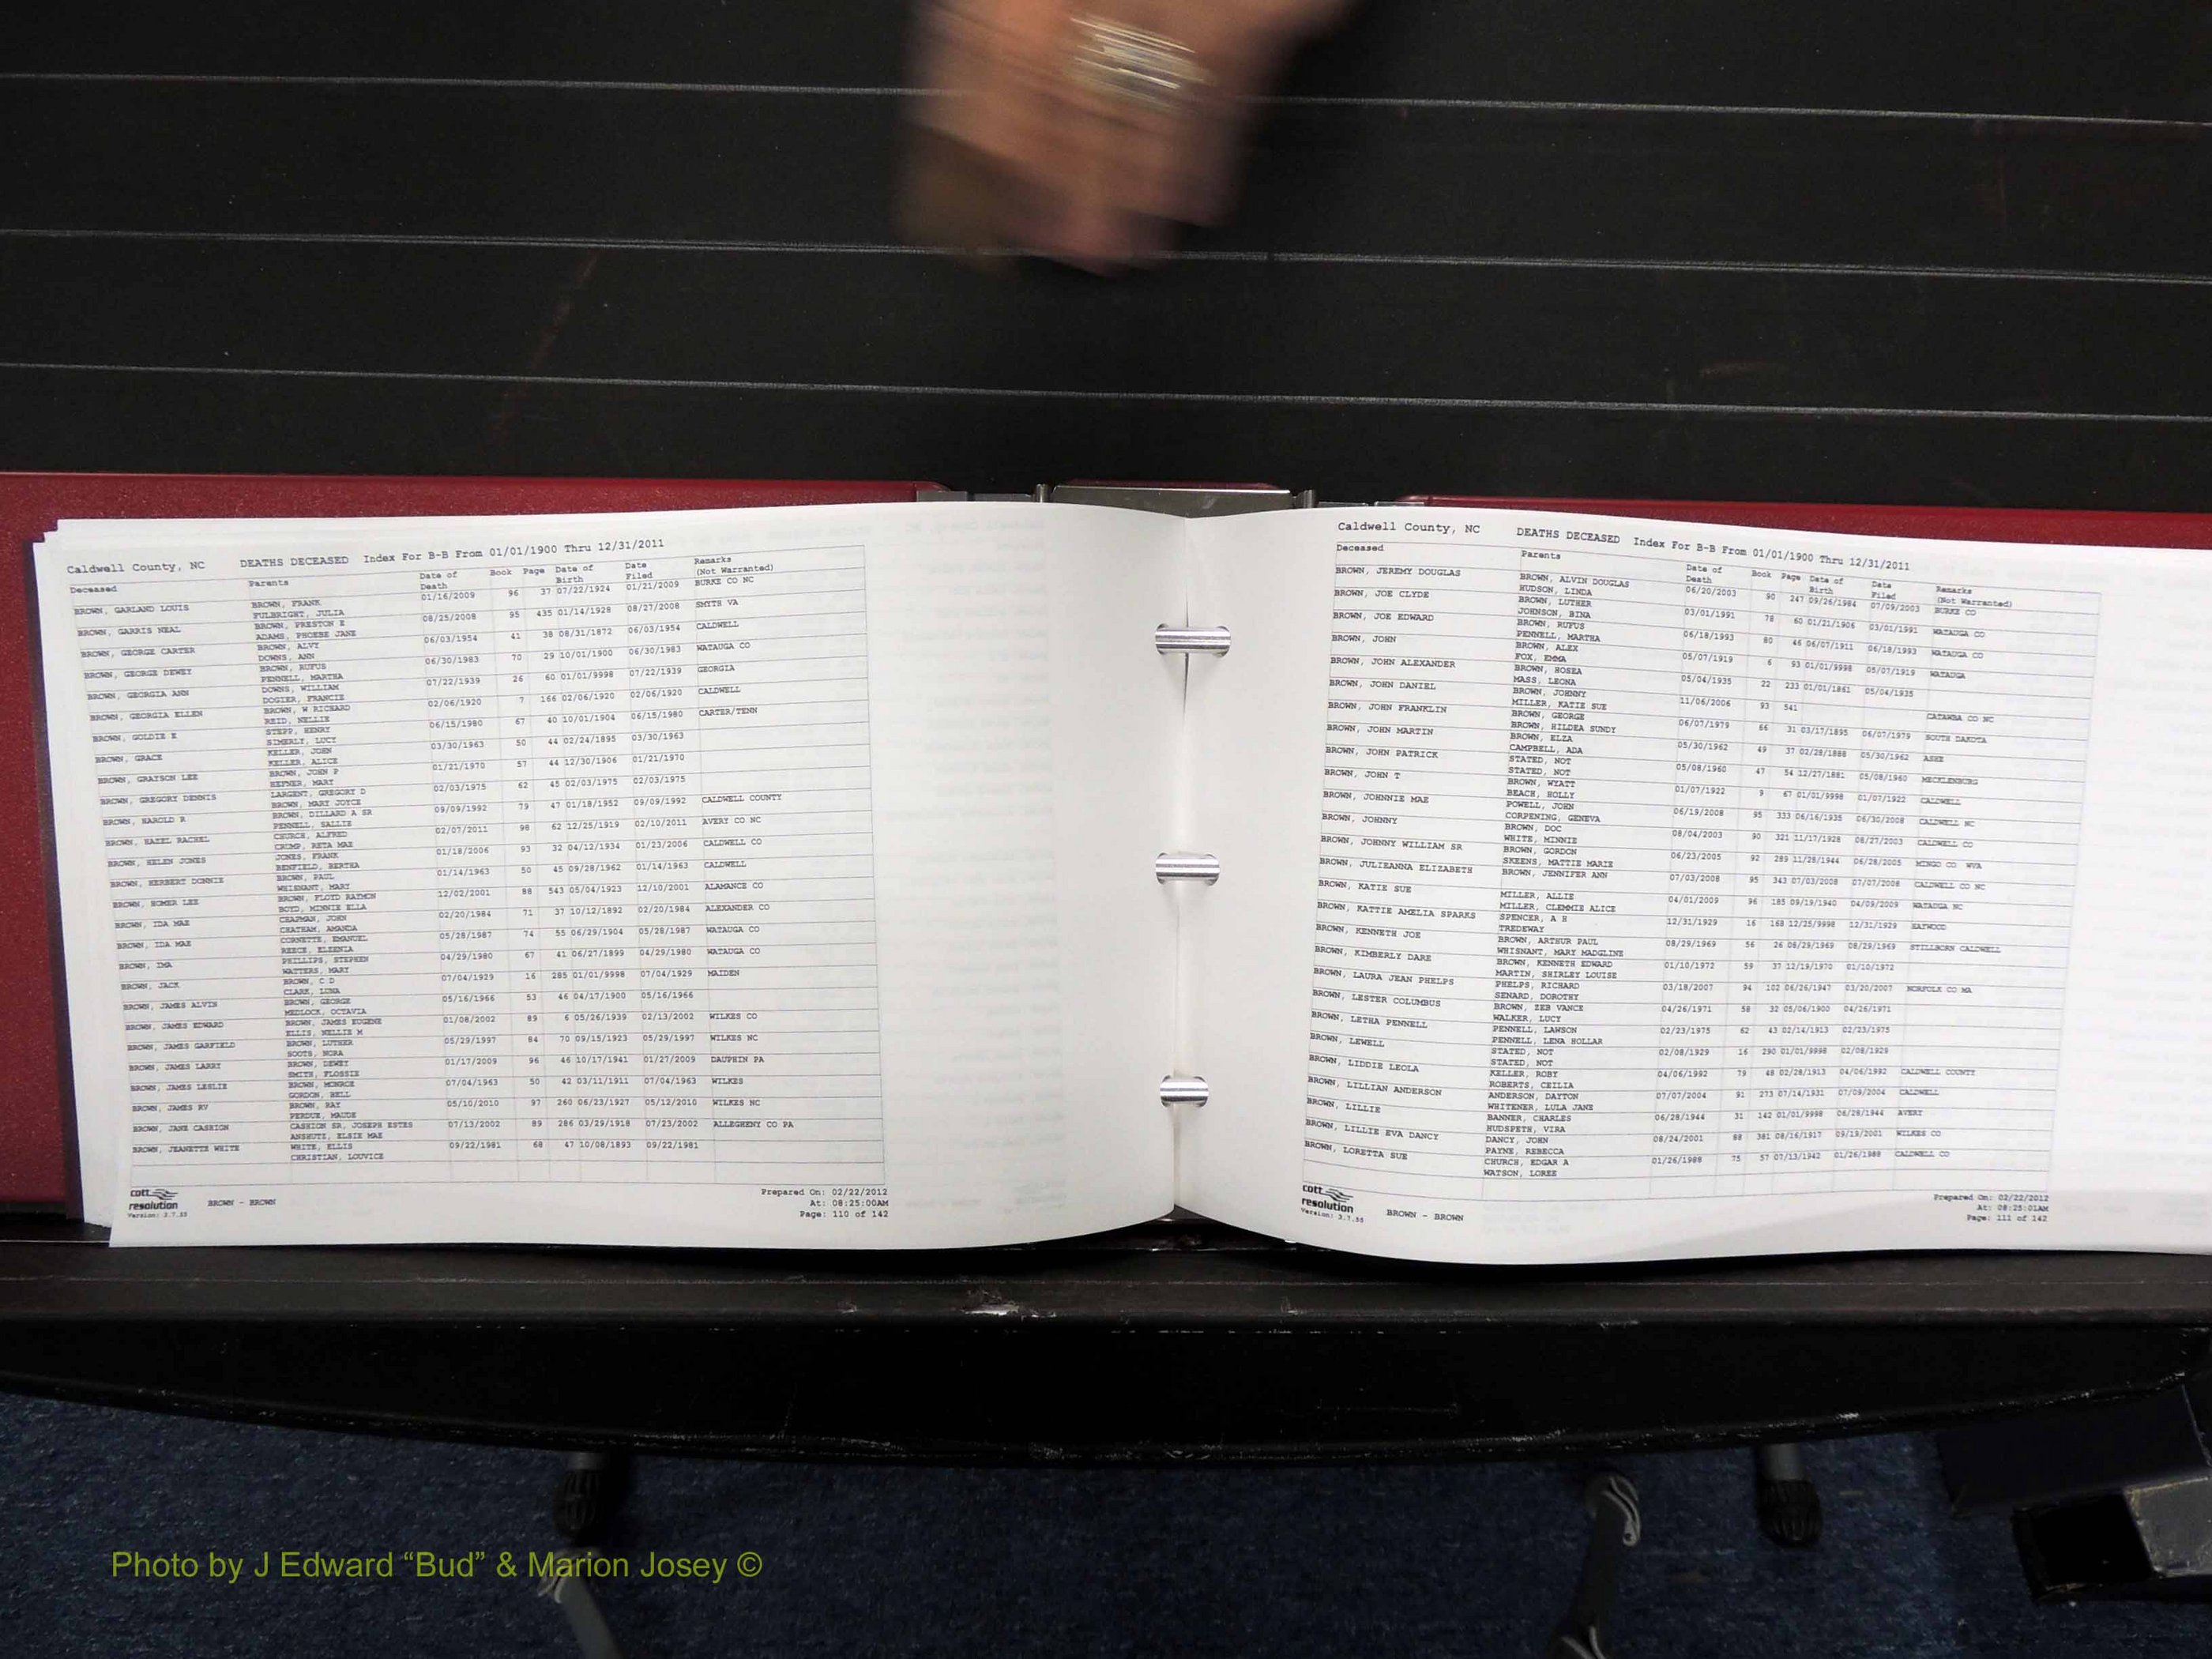 Caldwell County, NC DEATHS DECEASED Index For B-B From 01/01/1900 Thru 12/31/2011
Deceased Parents Date of Death Book Page Date of Birth Date Filed Remarks (Not Warranted)
BROWN, GARLAND LOUIS BROWN, FRANK 01/16/2009 96 37 07/22/1924 01/21/2009 BURKE CO NC
FULBRIGHT, JULIA
BROWN, GARRIS NEAL BROWN, PRESTON E 08/25/2008 95 435 01/14/1928 08/27/2008 SMYTH VA
ADAMS, PHOEBE JANE
BROWN, GEORGE CARTER BROWN, ALVY 06/03/1954 41 38 08/31/1872 06/03/1954 CALDWELL
DOWNS, ANN
BROWN, GEORGE DEWEY BROWN, RUFUS 06/30/1983 70 29 10/01/1900 06/30/1983 WATAUGA CO
PENNELL, MARTHA
BROWN, GEORGIA ANN DOWNS, WILLIAM 07/22/1939 26 60 01/01/9998 07/22/1939 GEORGIA
DOGIER, FRANCIE
BROWN, GEORGIA ELLEN BROWN, W RICHARD 02/06/1920 7 166 02/06/1920 02/06/1920 CALDWELL
REID, NELLIE
BROWN, GOLDIE E STEPP, HENRY 06/15/1980 67 40 10/01/1904 06/15/1980 CARTER/TENN
SIMERLY, LUCY
BROWN, GRACE KELLER, JOHN 03/30/1963 50 44 02/24/1895 03/30/1963
KELLER, ALICE
BROWN, GRAYSON LEE BROWN, JOHN P 01/21/1970 57 44 12/30/1906 01/21/1970
HEFNER, MARY
BROWN, GREGORY DENNIS LARGENT, GREGORY D 02/03/1975 62 45 02/03/1975 02/03/1975
BROWN, MARY JOYCE
BROWN, HAROLD R BROWN, DILLARD A SR 09/09/1992 79 47 01/18/1952 09/09/1992 CALDWELL COUNTY
PENNELL, SALLIE
BROWN, HAZEL RACHEL CHURCH, ALFRED 02/07/2011 98 62 12/25/1919 02/10/2011 AVERY CO NC
CRUMP, RETA MAE
BROWN, HELEN JONES JONES, FRANK 01/18/2006 93 32 04/12/1934 01/23/2006 CALDWELL CO
BENFIELD, BERTHA
BROWN, HERBERT DONNIE BROWN, PAUL 01/14/1963 50 45 09/28/1962 01/14/1963 CALDWELL
WHISNANT, MARY
BROWN, HOMER LEE BROWN, FLOYD RAYMON 12/02/2001 88 543 05/04/1923 12/10/2001 ALAMANCE CO
BOYD, MINNIE ELLA
BROWN, IDA MAE CHAPMAN, JOHN 02/20/1984 71 37 10/12/1892 02/20/1984 ALEXANDER CO
CHATHAM, AMANDA
BROWN, IDA MAE CORNETTE, EMANUEL 05/28/1987 74 55 06/29/1904 05/28/1987 WATAUGA CO
REECE, ELZENIA
BROWN, IMA PHILLIPS, STEPHEN 04/29/1980 67 41 06/27/1899 04/29/1980 WATAUGA CO
WATTERS, MARY
BROWN, JACK BROWN, C D 07/04/1929 16 285 01/01/9998 07/04/1929 MAIDEN
CLARK, LUNA
BROWN, JAMES ALVIN BROWN, GEORGE 05/16/1966 53 46 04/17/1900 05/16/1966
MEDLOCK, OCTAVIA
BROWN, JAMES EDWARD BROWN, JAMES EUGENE 01/08/2002 89 6 05/26/1939 02/13/2002 WILKES CO
ELLIS, NELLIE M
BROWN, JAMES GARFIELD BROWN, LUTHER 05/29/1997 84 70 09/15/1923 05/29/1997 WILKES NC
SOOTS, NORA
BROWN, JAMES LARRY BROWN, DEWEY 01/17/2009 96 46 10/17/1941 01/27/2009 DAUPHIN PA
SMITH, FLOSSIE
BROWN, JAMES LESLIE BROWN, MONROE 07/04/1963 50 42 03/11/1911 07/04/1963 WILKES
GORDON, BELL
BROWN, JAMES RV BROWN, RAY 05/10/2010 97 260 06/23/1927 05/12/2010 WILKES NC
PERDUE, MAUDE
BROWN, JANE CASHION CASHION SR, JOSEPH ESTES 07/13/2002 89 286 03/29/1918 07/23/2002 ALLEGHENY CO PA
ANSHUTZ, ELSIE MAE
BROWN, JEANETTE WHITE WHITE, ELLIS 09/22/1981 68 47 10/08/1893 09/22/1981
CHRISTIAN, LOUVICE
cott resolution
Version: 3.7.55
BROWN - BROWN
Prepared On: 02/22/2012
At: 08:25:00AM
Page: 110 of 142
Caldwell County, NC DEATHS DECEASED Index For B-B From 01/01/1900 Thru 12/31/2011
Deceased Parents Date of Death Book Page Date of Birth Date Filed Remarks (Not Warranted)
BROWN, JEREMY DOUGLAS BROWN, ALVIN DOUGLAS 06/20/2003 90 247 09/26/1984 07/09/2003 BURKE CO
HUDSON, LINDA
BROWN, JOE CLYDE BROWN, LUTHER 03/01/1991 78 60 01/21/1906 03/01/1991 WATAUGA CO
JOHNSON, BINA
BROWN, JOE EDWARD BROWN, RUFUS 06/18/1993 80 46 06/07/1911 06/18/1993 WATAUGA CO
PENNELL, MARTHA
BROWN, JOHN BROWN, ALEX 05/07/1919 6 93 01/01/9998 05/07/1919 WATAUGA
FOX, EMMA
BROWN, JOHN ALEXANDER BROWN, HOSEA 05/04/1935 22 233 01/01/1861 05/04/1935
MASS, LEONA
BROWN, JOHN DANIEL BROWN, JOHNNY 11/06/2006 93 541 CATAWBA CO NC
MILLER, KATIE SUE
BROWN, JOHN FRANKLIN BROWN, GEORGE 06/07/1979 66 31 03/17/1895 06/07/1979 SOUTH DAKOTA
BROWN, HILDEA SUNDY
BROWN, JOHN MARTIN BROWN, ELZA 05/30/1962 49 37 02/28/1888 05/30/1962 ASHE
CAMPBELL, ADA
BROWN, JOHN PATRICK STATED, NOT 05/08/1960 47 54 12/27/1881 05/08/1960 MECKLENBURG
STATED, NOT
BROWN, JOHN T BROWN, WYATT 01/07/1922 9 67 01/01/9998 01/07/1922 CALDWELL
BEACH, HOLLY
BROWN, JOHNNIE MAE POWELL, JOHN 06/19/2008 95 333 06/16/1935 06/30/2008 CALDWELL NC
CORPENING, GENEVA
BROWN, JOHNNY BROWN, DOC 08/04/2003 90 321 11/17/1928 08/27/2003 CALDWELL CO
WHITE, MINNIE
BROWN, JOHNNY WILLIAM SR BROWN, GORDON 06/23/2005 92 289 11/28/1944 06/28/2005 MINGO CO WVA
SKEENS, MATTIE MARIE
BROWN, JULIEANNA ELIZABETH BROWN, JENNIFER ANN 07/03/2008 95 343 07/03/2008 07/07/2008 CALDWELL CO NC
BROWN, KATIE SUE MILLER, ALLIE 04/01/2009 96 185 09/19/1940 04/09/2009 WATAUGA NC
MILLER, CLEMMIE ALICE
BROWN, KATTIE AMELIA SPARKS SPENCER, A H 12/31/1929 16 168 12/25/9998 12/31/1929 HAYWOOD
TREDEWAY
BROWN, KENNETH JOE BROWN, ARTHUR PAUL 08/29/1969 56 26 08/29/1969 08/29/1969 STILLBORN CALDWELL
WHISNANT, MARY MADGLINE
BROWN, KIMBERLY DARE BROWN, KENNETH EDWARD 01/10/1972 59 37 12/19/1970 01/10/1972
MARTIN, SHIRLEY LOUISE
BROWN, LAURA JEAN PHELPS PHELPS, RICHARD 03/18/2007 94 102 06/26/1947 03/20/2007 NORFOLK CO MA
SENARD, DOROTHY
BROWN, LESTER COLUMBUS BROWN, ZEB VANCE 04/26/1971 58 32 05/06/1900 04/26/1971
WALKER, LUCY
BROWN, LETHA PENNELL PENNELL, LAWSON 02/23/1975 62 43 02/14/1913 02/23/1975
PENNELL, LENA HOLLAR
BROWN, LEWELL STATED, NOT 02/08/1929 16 290 01/01/9998 02/08/1929
STATED, NOT
BROWN, LIDDIE LEOLA KELLER, ROBY 04/06/1992 79 48 02/28/1913 04/06/1992 CALDWELL COUNTY
ROBERTS, CEILIA
BROWN, LILLIAN ANDERSON ANDERSON, DAYTON 07/07/2004 91 273 07/14/1931 07/09/2004 CALDWELL
WHITENER, LULA JANE
BROWN, LILLIE BANNER, CHARLES 06/28/1944 31 142 01/01/9998 06/28/1944 AVERY
HUDSPETH, VIRA
BROWN, LILLIE EVA DANCY DANCY, JOHN 08/24/2001 88 381 08/16/1917 09/19/2001 WILKES CO
PAYNE, REBECCA
BROWN, LORETTA SUE CHURCH, EDGAR A 01/26/1988 75 57 07/13/1942 01/26/1988 CALDWELL CO
WATSON, LOREE
cott resolution
Version: 3.7.55
BROWN - BROWN
Prepared On: 02/22/2012
At: 08:25:01AM
Page: 111 of 142
Photo by J Edward “Bud” & Marion Josey ©